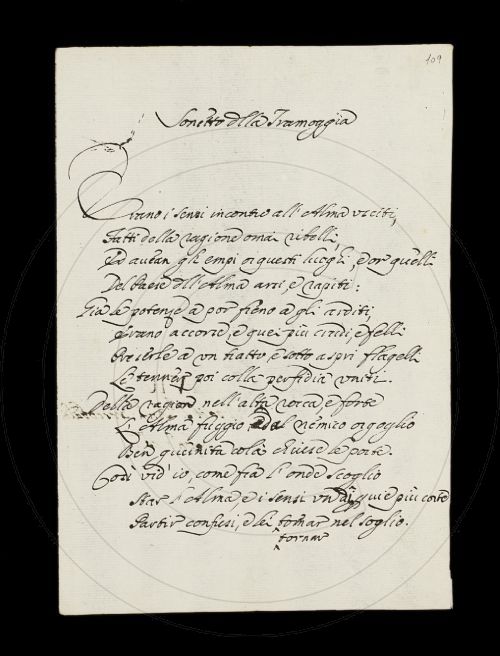 109
Sonetto della Tramoggia
Erano i sensi incontro all'Alma usciti,
Fatti della ragione omai ribelli,
Ed avean gli empi or questi luoghi, e or quelli
Del Paese dell'Alma arsi, e rapiti:
Già le potenze a por freno a gli arditi,
Erano accorse, e quei più crudi, e felli
a un tratto, e sotto aspri flagelli
Le tenner poi colla perfidia uniti.
Della ragion nell'alta rocca, e forte
L'Alma fuggio dal nemico orgoglio
Ben colà chiuse le porte.
Così vid'io, come fra l'onde scoglio
Star l'Alma, e i sensi un dì, quie più corte
Partir confusi, e lei tornar nel soglio.
tornar